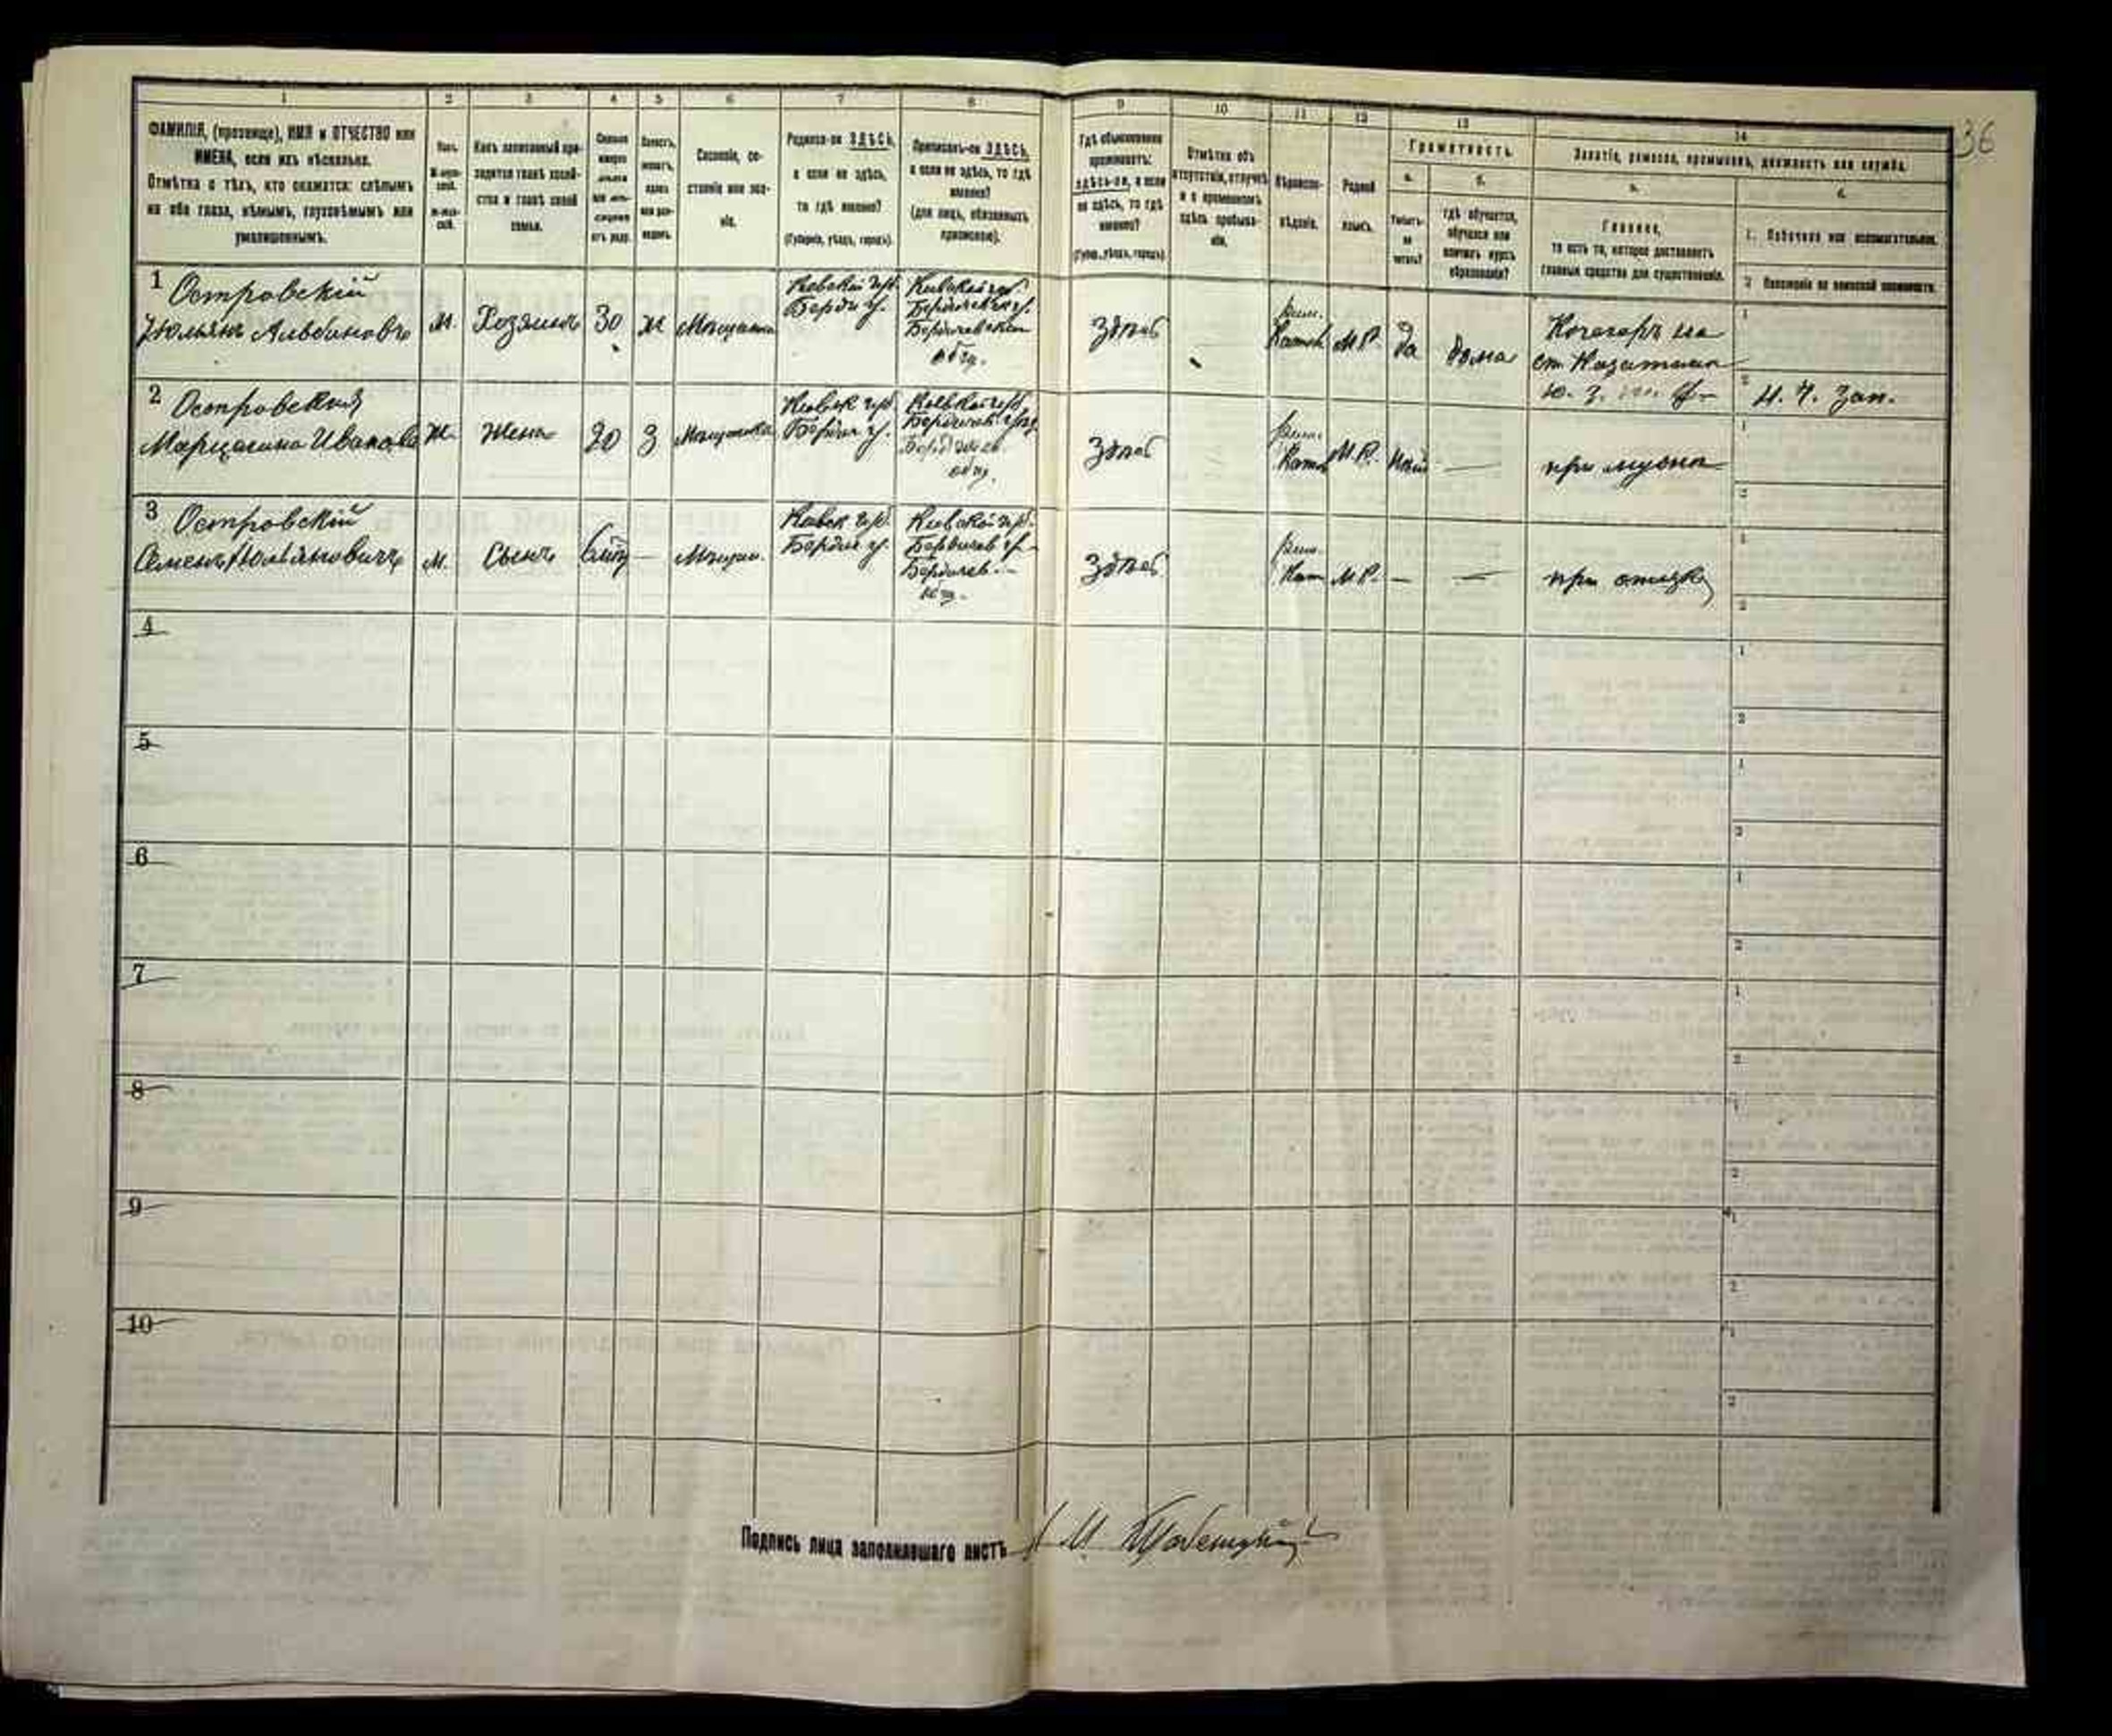 36
1
2
3
4
5
6
7
8
9
10
11
12
13
14
ФАМИЛІЯ, (прозвище), ИМЯ и ОТЧЕСТВО или
ИМЕНА, если ихъ нѣсколько.
Отмѣтка о тѣхъ, кто окажется: слѣпымъ
на оба глаза, нѣмымъ, глухонѣмымъ или
умалишеннымъ.
Какъ записанный при-
ходится главѣ хозяй-
ства и главѣ своей
семьи.
Сословіе, со-
стояніе или зва-
ніе.
Родился-ли ЗДѢСЬ,
а если не здѣсь,
то гдѣ именно?
(Губернія, уѣздъ, городъ).
Приписанъ-ли ЗДѢСЬ,
а если не здѣсь, то гдѣ
именно?
(для лицъ, обязанныхъ
припискою).
Гдѣ обыкновенно
проживаетъ:
здѣсь-ли, а если
не здѣсь, то гдѣ
именно?
(Губер., уѣздъ, городъ)
Отмѣтка объ
отсутствіи, отлучкѣ
и о временномъ
здѣсь пребыва-
ніи.
Вѣроиспо-
вѣданіе.
Родной
языкъ.
Грамотность.
а.
б.
Умѣетъ-
ли
читать?
гдѣ обучается,
обучался или
кончилъ курсъ
образованія?
Занятіе, ремесло, промыселъ, должность или служба.
Главное,
то есть то, которое доставляетъ
главныя средства для существованія.
1. Побочное или вспомогательное.
2 Положеніе по воинской повинности.
1 Островскій
Юльянъ Альбиновъ
М.
Хозяинъ
30
Ж
Кіевской губ.
Бердич у.
Кіевской губ.
Бердичевск у.
Бердичевскаго
общ.
Здѣсь
Рим.
Катол
М.Р.
да
дома
Кочегаръ на
ст. Казатинъ
Ю. З.
Н. Ч. Зап.
2 Островская
Марцелина Иванова
Ж.
Жена
20
З
Мѣщанка
Кіевск губ.
Бердич у.
Кіевской губ.
общ.
Здѣсь
Рим.
Катол
М.Р.
—
при мужѣ
3 Островскій
Семенъ Юльяновичъ
М.
Сынъ
—
Мѣщан.
Кіевск губ.
Бердич у.
Кіевской губ.
Бердичев у.
Бердичев.
общ.
Здѣсь
Рим.
Кат
М.Р.
—
—
при отцѣ
4
5
6
7
8
9
10
Подпись лица заполнившаго листъ